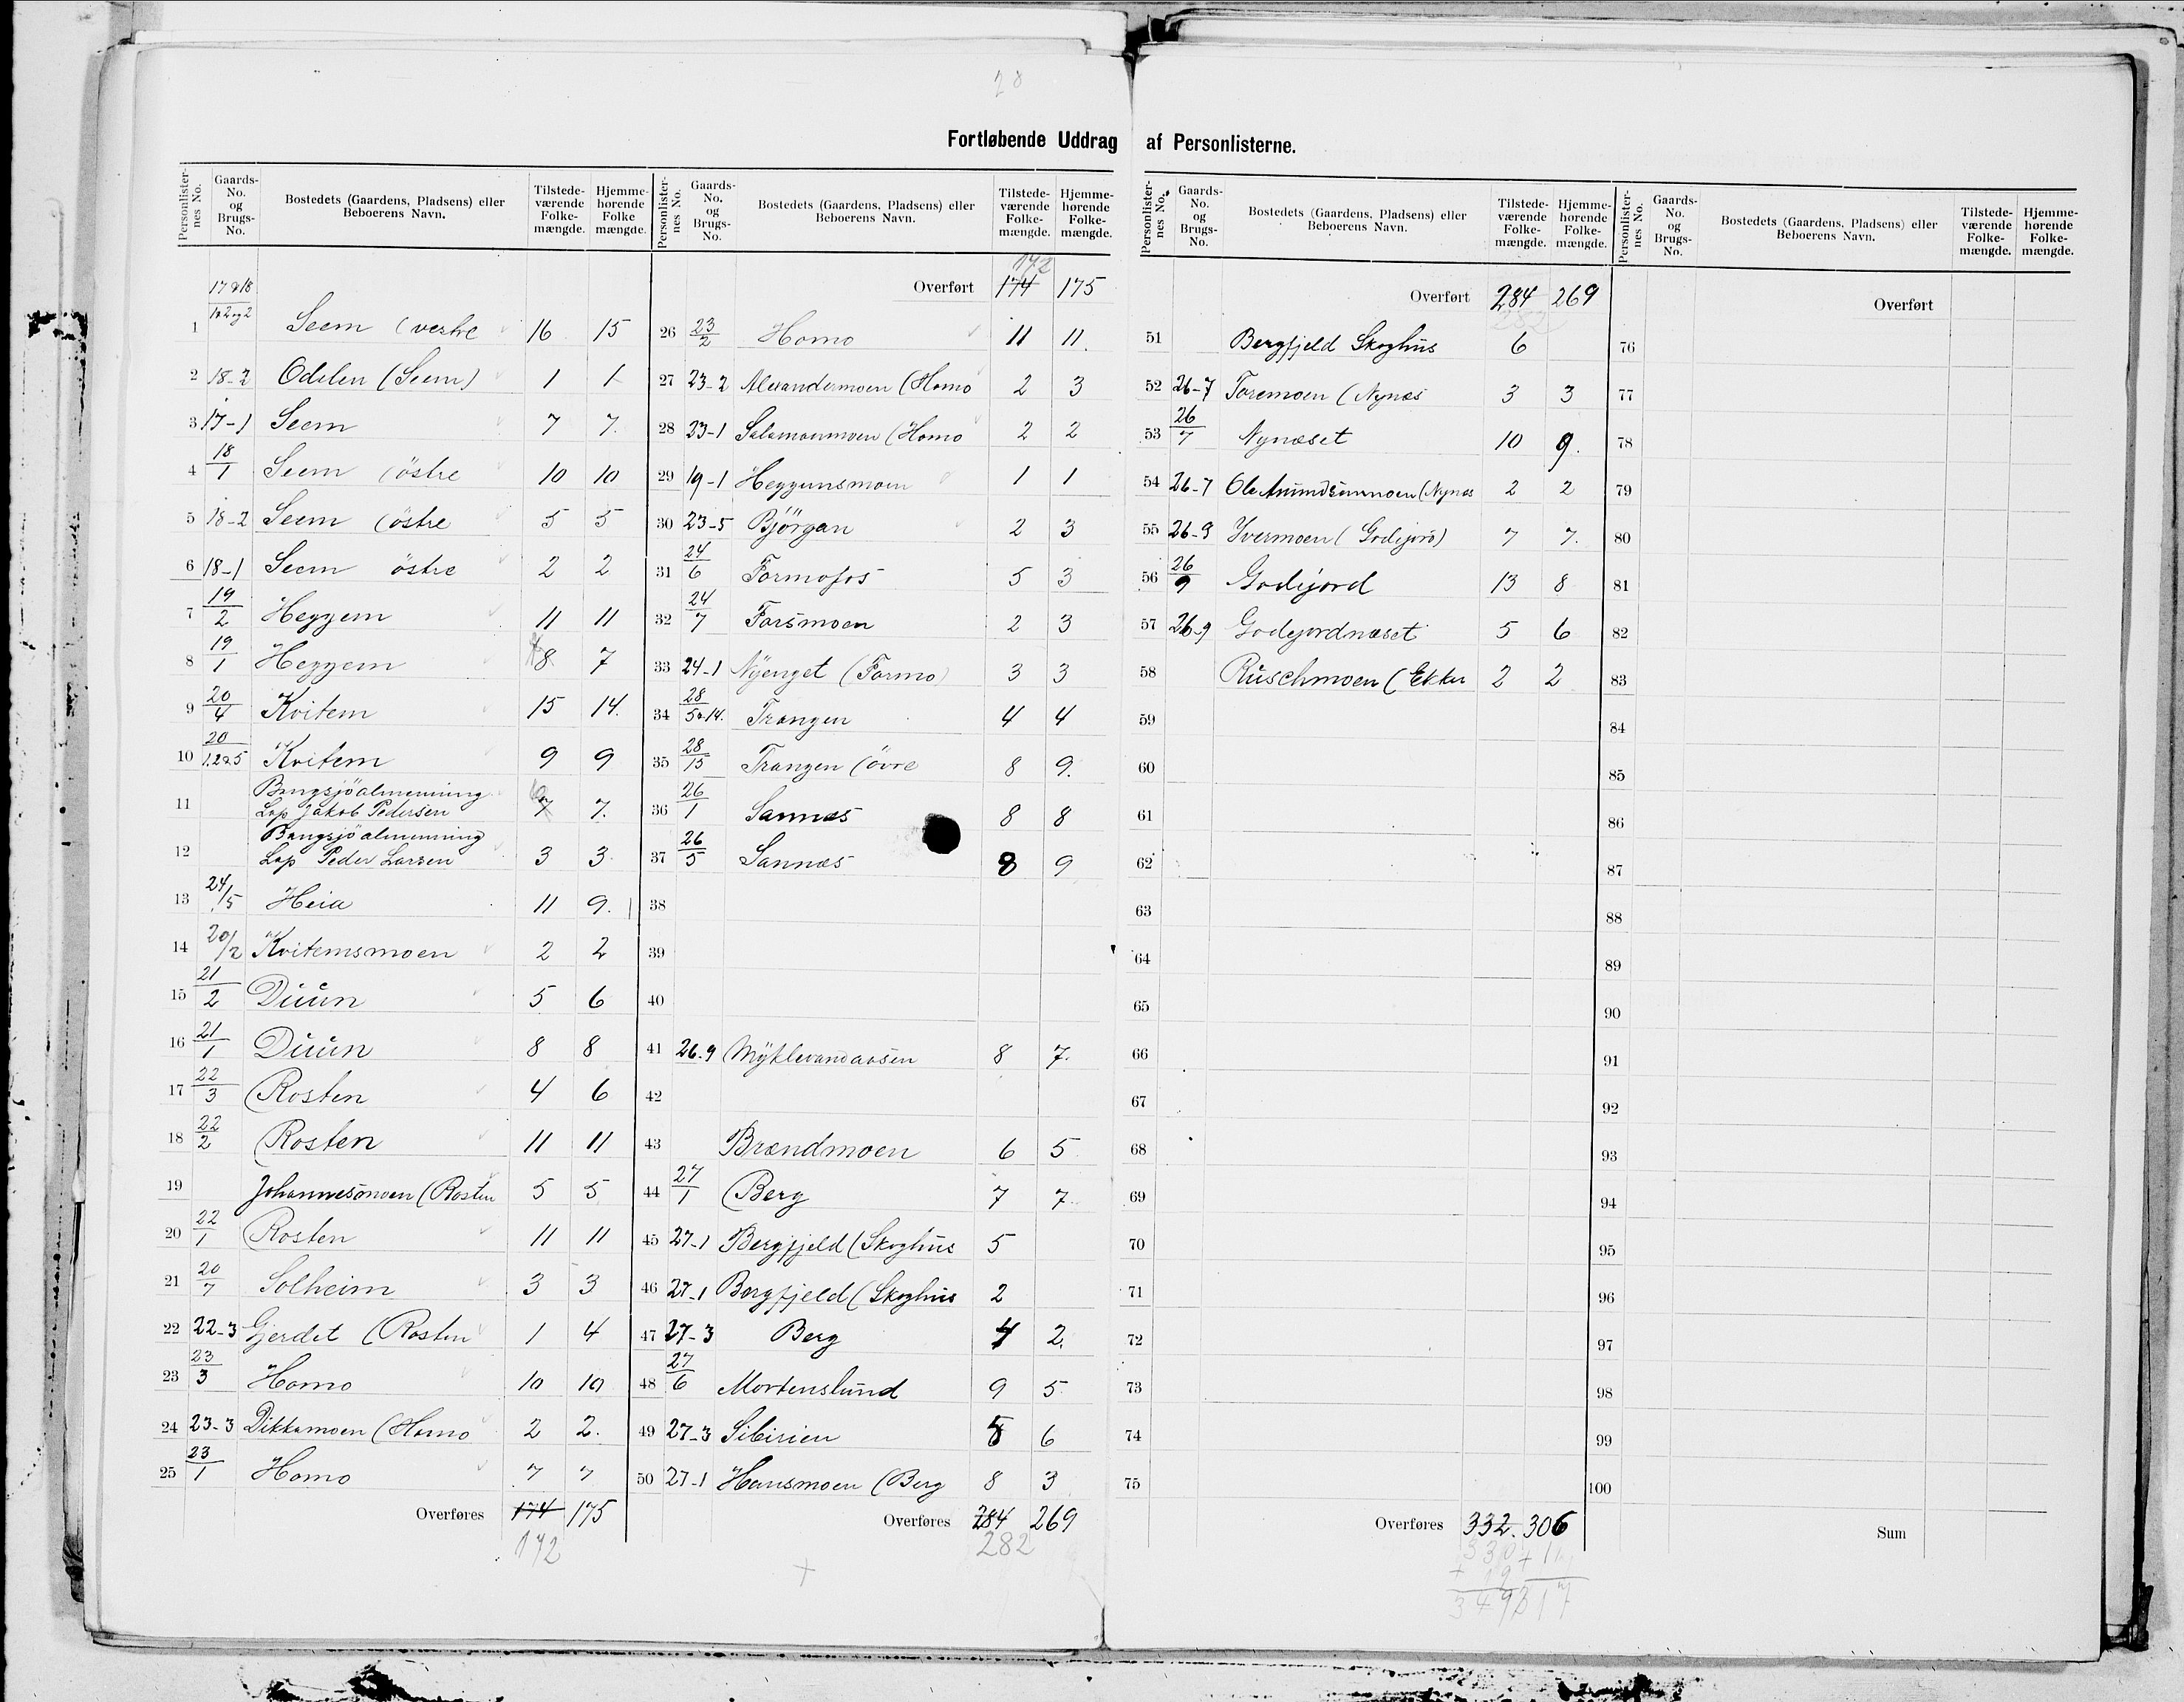 28
Fortløbende Uddrag af Personlisterne.
Personlisternes No. Gaards-No. og Brugs-No. Bostedets (Gaardens, Pladsens) eller Beboerens Navn. Tilstedeværende Folkemængde. Hjemmehørende Folkemængde.
17 & 18
1 1 & 2 og 2 Seem (vestre 16 15
2 18-2 Odelen (Seem) 1 1
3 17-1 Seem 7 7.
4 18/1 Seem (östre 10 10
5 18-2 Seem (östre 5 5
6 18-1 Seem östre 2 2
7 19/2 Heggem 11 11
8 19/1 Heggem 8 7
9 20/4 Kvitem 15 14.
10 20/1.2&5 Kvitem 9 9
11 Bangsjöalmenning
Lap Jakob Pedersen 7 7.
12 Bangsjöalmenning
Lap Peder Larsen 3 3
13 24/5 Heia 11 9.
14 20/2 Kvitemsmoen 2 2
15 21/2 Duun 5 6
16 21/1 Duun 8 8
17 22/3 Rosten 4 6
18 22/2 Rosten 11 11
19 Johannesmoen (Rosten 5 5
20 22/1 Rosten 11 11
21 20/7 Solheim 3 3
22 22-3 Gjerdet (Rosten 1 4
23 23/3 Homo 10 10
24 23-3 Dikkamoen (Homo 2 2.
25 23/1 Homo 7 7
Overføres 174 175
172
Personlisternes No. Gaards-No. og Brugs-No. Bostedets (Gaardens, Pladsens) eller Beboerens Navn. Tilstedeværende Folkemængde. Hjemmehørende Folkemængde.
172
Overført 174 175
26 23/2 Homo 11 11.
27 23-2 Alexandermoen (Homo 2 3
28 23-1 Salamonmoen (Homo 2 2
29 19-1 Heggumsmoen 1 1
30 23-5 Björgan 2 3
31 24/6 Formofos 5 3
32 24/7 Forsmoen 2 3
33 24-1 Nyenget (Formo) 3 3
34 28/5&14. Trangen 4 4
35 28/15 Trangen (övre 8 9.
36 26/1 Sannæs 8 8
37 26/5 Sannæs 8 9
38
39
40
41 26-9 Myklevandaasen 8 7.
42
43 Brændmoen 6 5
44 27/1 Berg 7 7
45 27-1 Bergfjeld (Skoghus 5
46 27-1 Bergfjeld (Skoghus 2
47 27-3 Berg 4 2.
48 27/6 Mortenslund 9 5
49 27-3 Sibirien 5 6
50 27-1 Hansmoen (Berg 8 3
Overføres 284 269
282
Personlisternes No. Gaards-No. og Brugs-No. Bostedets (Gaardens, Pladsens) eller Beboerens Navn. Tilstedeværende Folkemængde. Hjemmehørende Folkemængde.
Overført 284 269
282
51 Bergfjeld Skoghus 6
52 26-7 Toremoen (Nynæs 3 3
53 26/7 Nynæset 10 9.
54 26-7 Ole Amundsenmoen (Nynæs 2 2
55 26-9 Ivermoen (Godejord) 7 7.
56 26/9 Godejord 13 8
57 26-9 Godejordnæset 5 6
58 Ruschmoen (Ekker 2 2
59
60
61
62
63
64
65
66
67
68
69
70
71
72
73
74
75
Overføres 332. 306
330 + 11
+ 19
349 317
Personlisternes No. Gaards-No. og Brugs-No. Bostedets (Gaardens, Pladsens) eller Beboerens Navn. Tilstedeværende Folkemængde. Hjemmehørende Folkemængde.
Overført
76
77
78
79
80
81
82
83
84
85
86
87
88
89
90
91
92
93
94
95
96
97
98
99
100
Sum